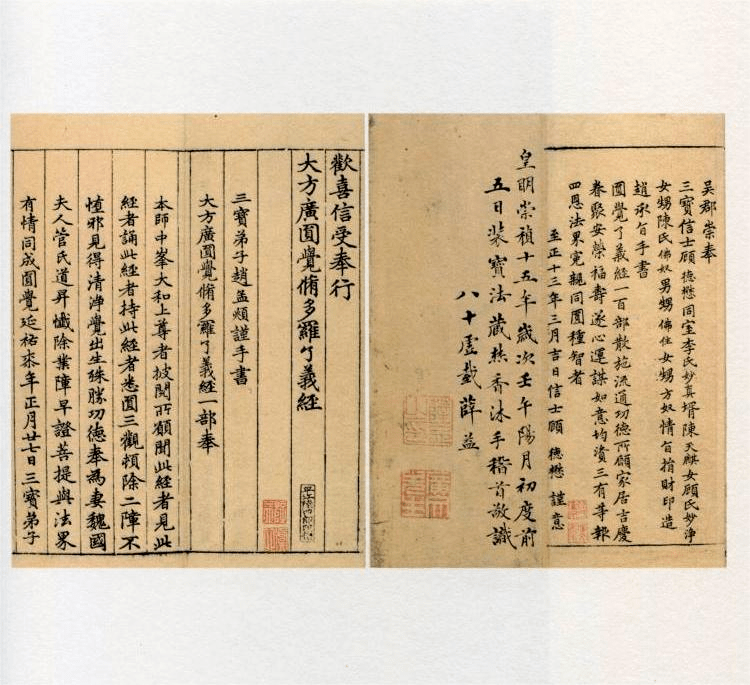 吳郡崇奉
三寶信士顧德懋同室李氏妙真壻陳天麒女顧氏妙淨
女甥陳氏佛奴男甥佛住女甥方奴情旨捐財印造
趙承旨手書
圓覺了義經一百部散施流通功德所願家居吉慶
眷聚安榮福壽遂心運謀如意均資三有等報
四恩法界冤親同圓種智者
至正十三年三月吉日信士顧德懋謹意
皇明崇禎十五年歲次壬午陽月初度前
五日裝寶法藏焚香沐手稽首敬識
八十虛薛益
歡喜信受奉行
大方廣圓覺脩多羅了義經
三寶弟子趙孟頫謹手書
大方廣圓覺脩多羅了義經一部奉
本師中峯大和上尊者披閱所願聞此經者見此
經者誦此經者持此經者悉圓三觀頓除二障不
憶邪見得清淨覺出生殊勝功德奉為妻魏國
夫人管氏道昇懺除業障早證菩提與法界
有情同成圓覺延祐柒年正月廿七日三寶弟子